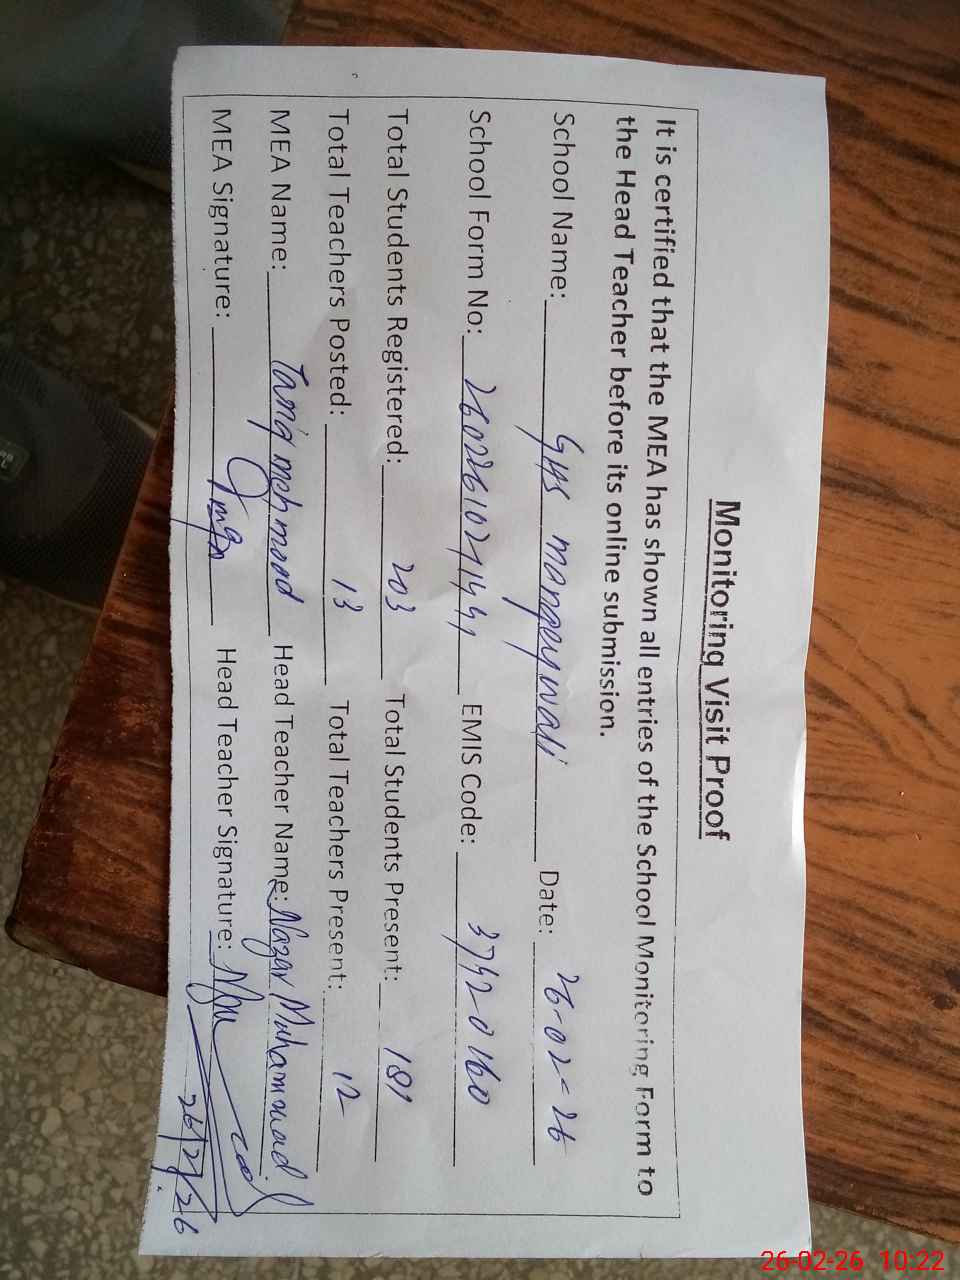 Monitoring Visit Proof
It is certified that the MEA has shown all entries of the School Monitoring Form to
the Head Teacher before its online submission.
School Name: GHS mangeywali Date: 26-02-26
School Form No: EMIS Code: 37420160
Total Students Registered: 203 Total Students Present: 181
Total Teachers Posted: 13 Total Teachers Present: 12
MEA Name: Tariq mehmood Head Teacher Name: Nazar Muhammad
MEA Signature: Head Teacher Signature:
26/2/26
26-02-26 10:22